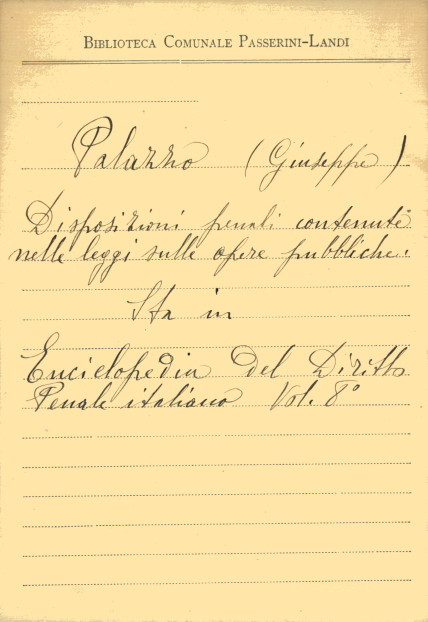 BIBLIOTECA COMUNALE PASSERINI-LANDI
Palazzo (Giuseppe)
Disposizioni penali contenute
nelle leggi sulle opere pubbliche.
Sta in
Enciclopedia del Diritto
Penale italiano Vol. 8º